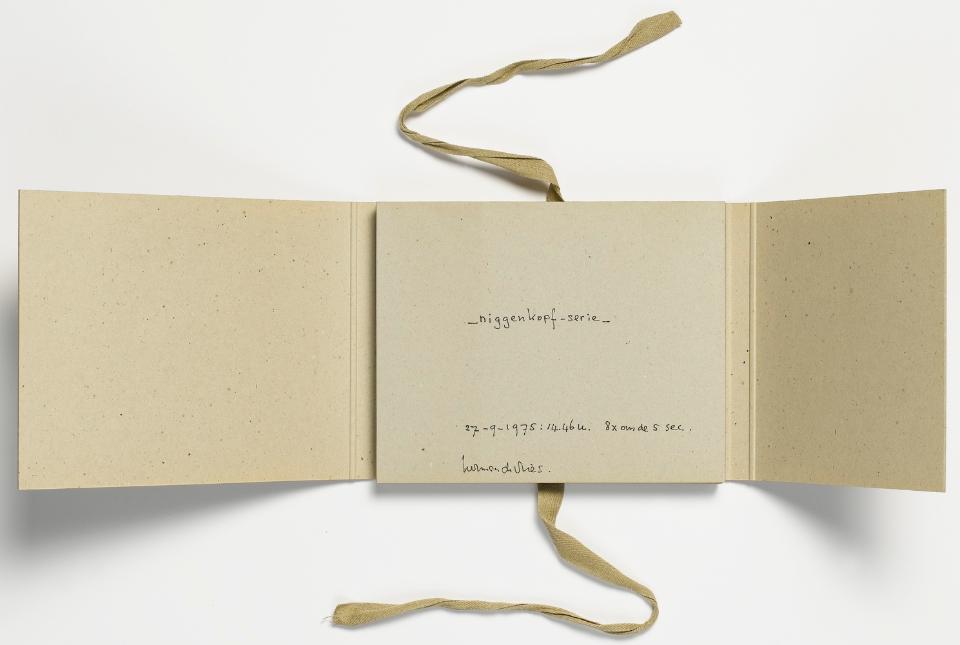 _niggenkopf-serie_
27-9-1975: 14.46 u. 8x om de 5 sec.
herman de vries.